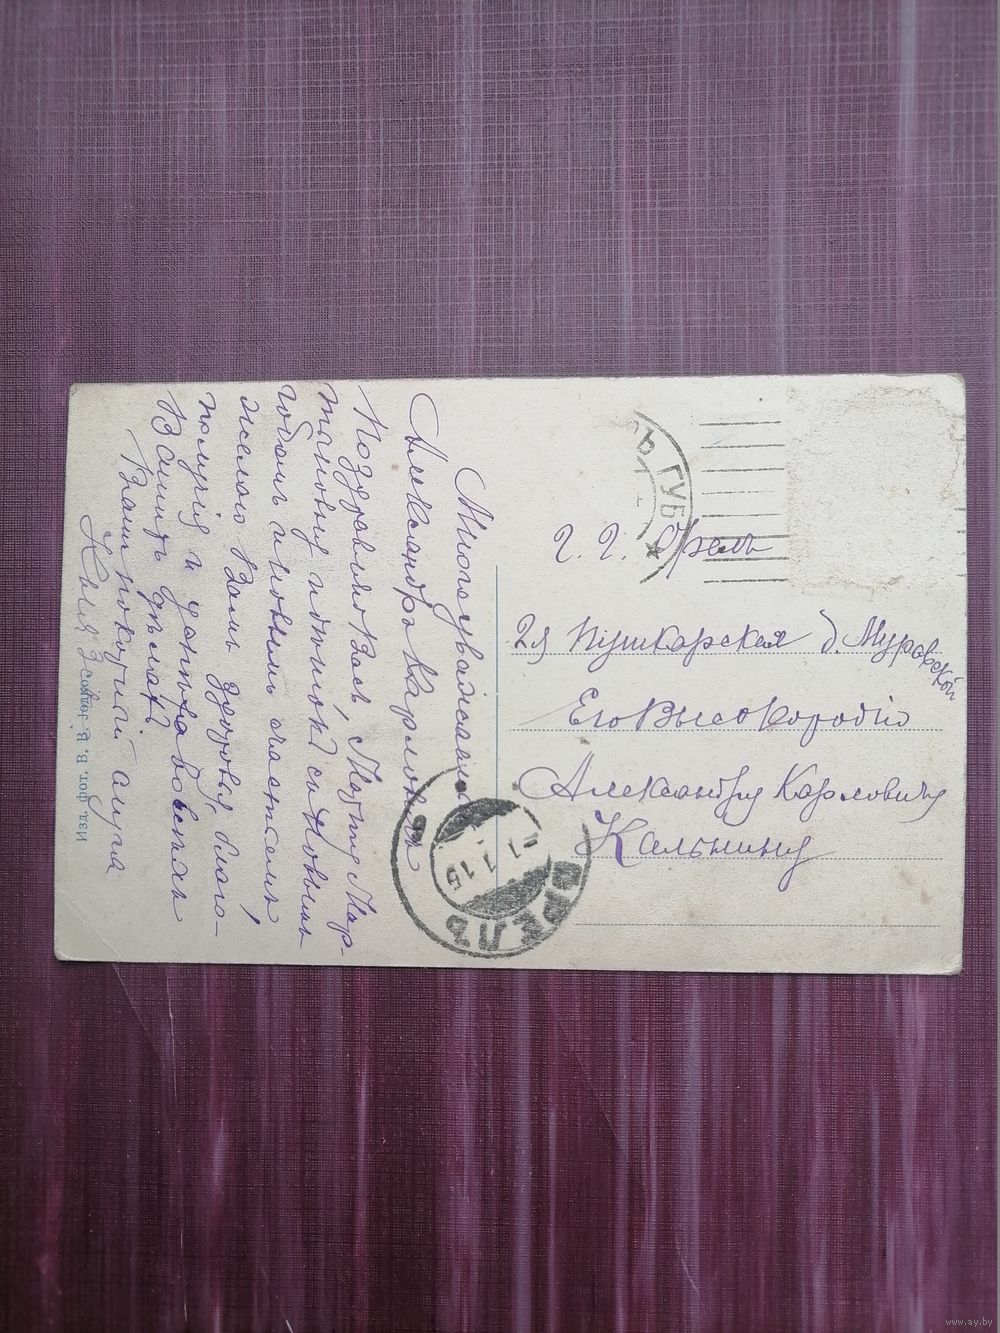 Многоуважаемый
Александръ Карловичъ
Поздравляю Васъ, Марту Мар-
тиновну и дѣтокъ съ Новымъ
годомъ и новымъ счастьемъ,
желаю Вамъ здоровья, благо-
получія и успѣха во всѣхъ
Вашихъ дѣлахъ
Вашъ покорный слуга
Изд. фот. В. В.
Г. Г. Орелъ
2я Пушкарская д. Муравской
Его Высокородію
Александру Карловичу
Кальнину
Ъ ГУБ
ОРЕЛЪ
-1.1.15
www.ay.by